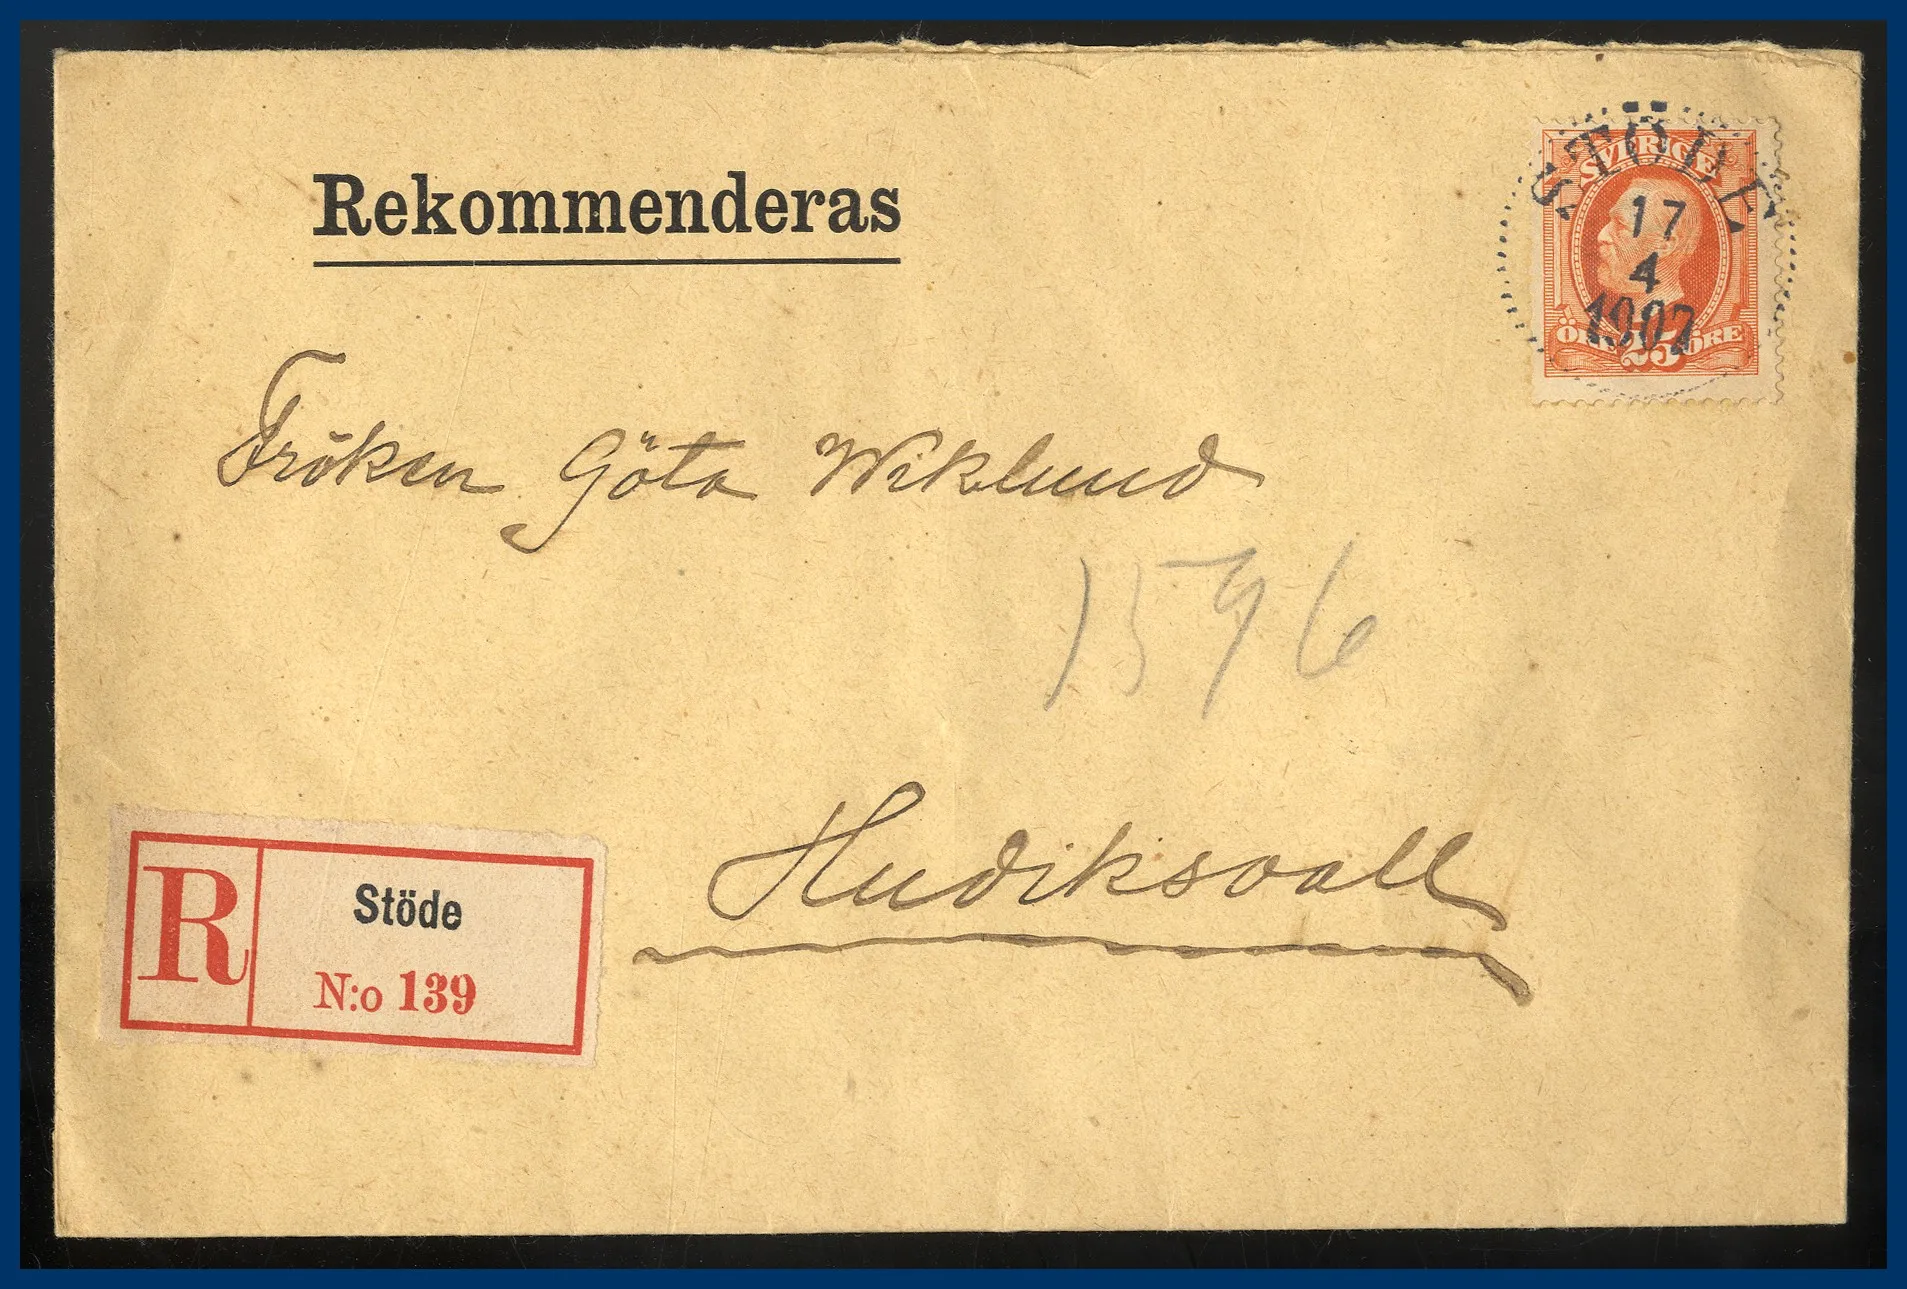 Rekommenderas
STÖDE
17
4
1907
SVERIGE
ÖRE 25 ÖRE
Fröken Göta Wiklund
1596
Hudiksvall
R
Stöde
N:o 139